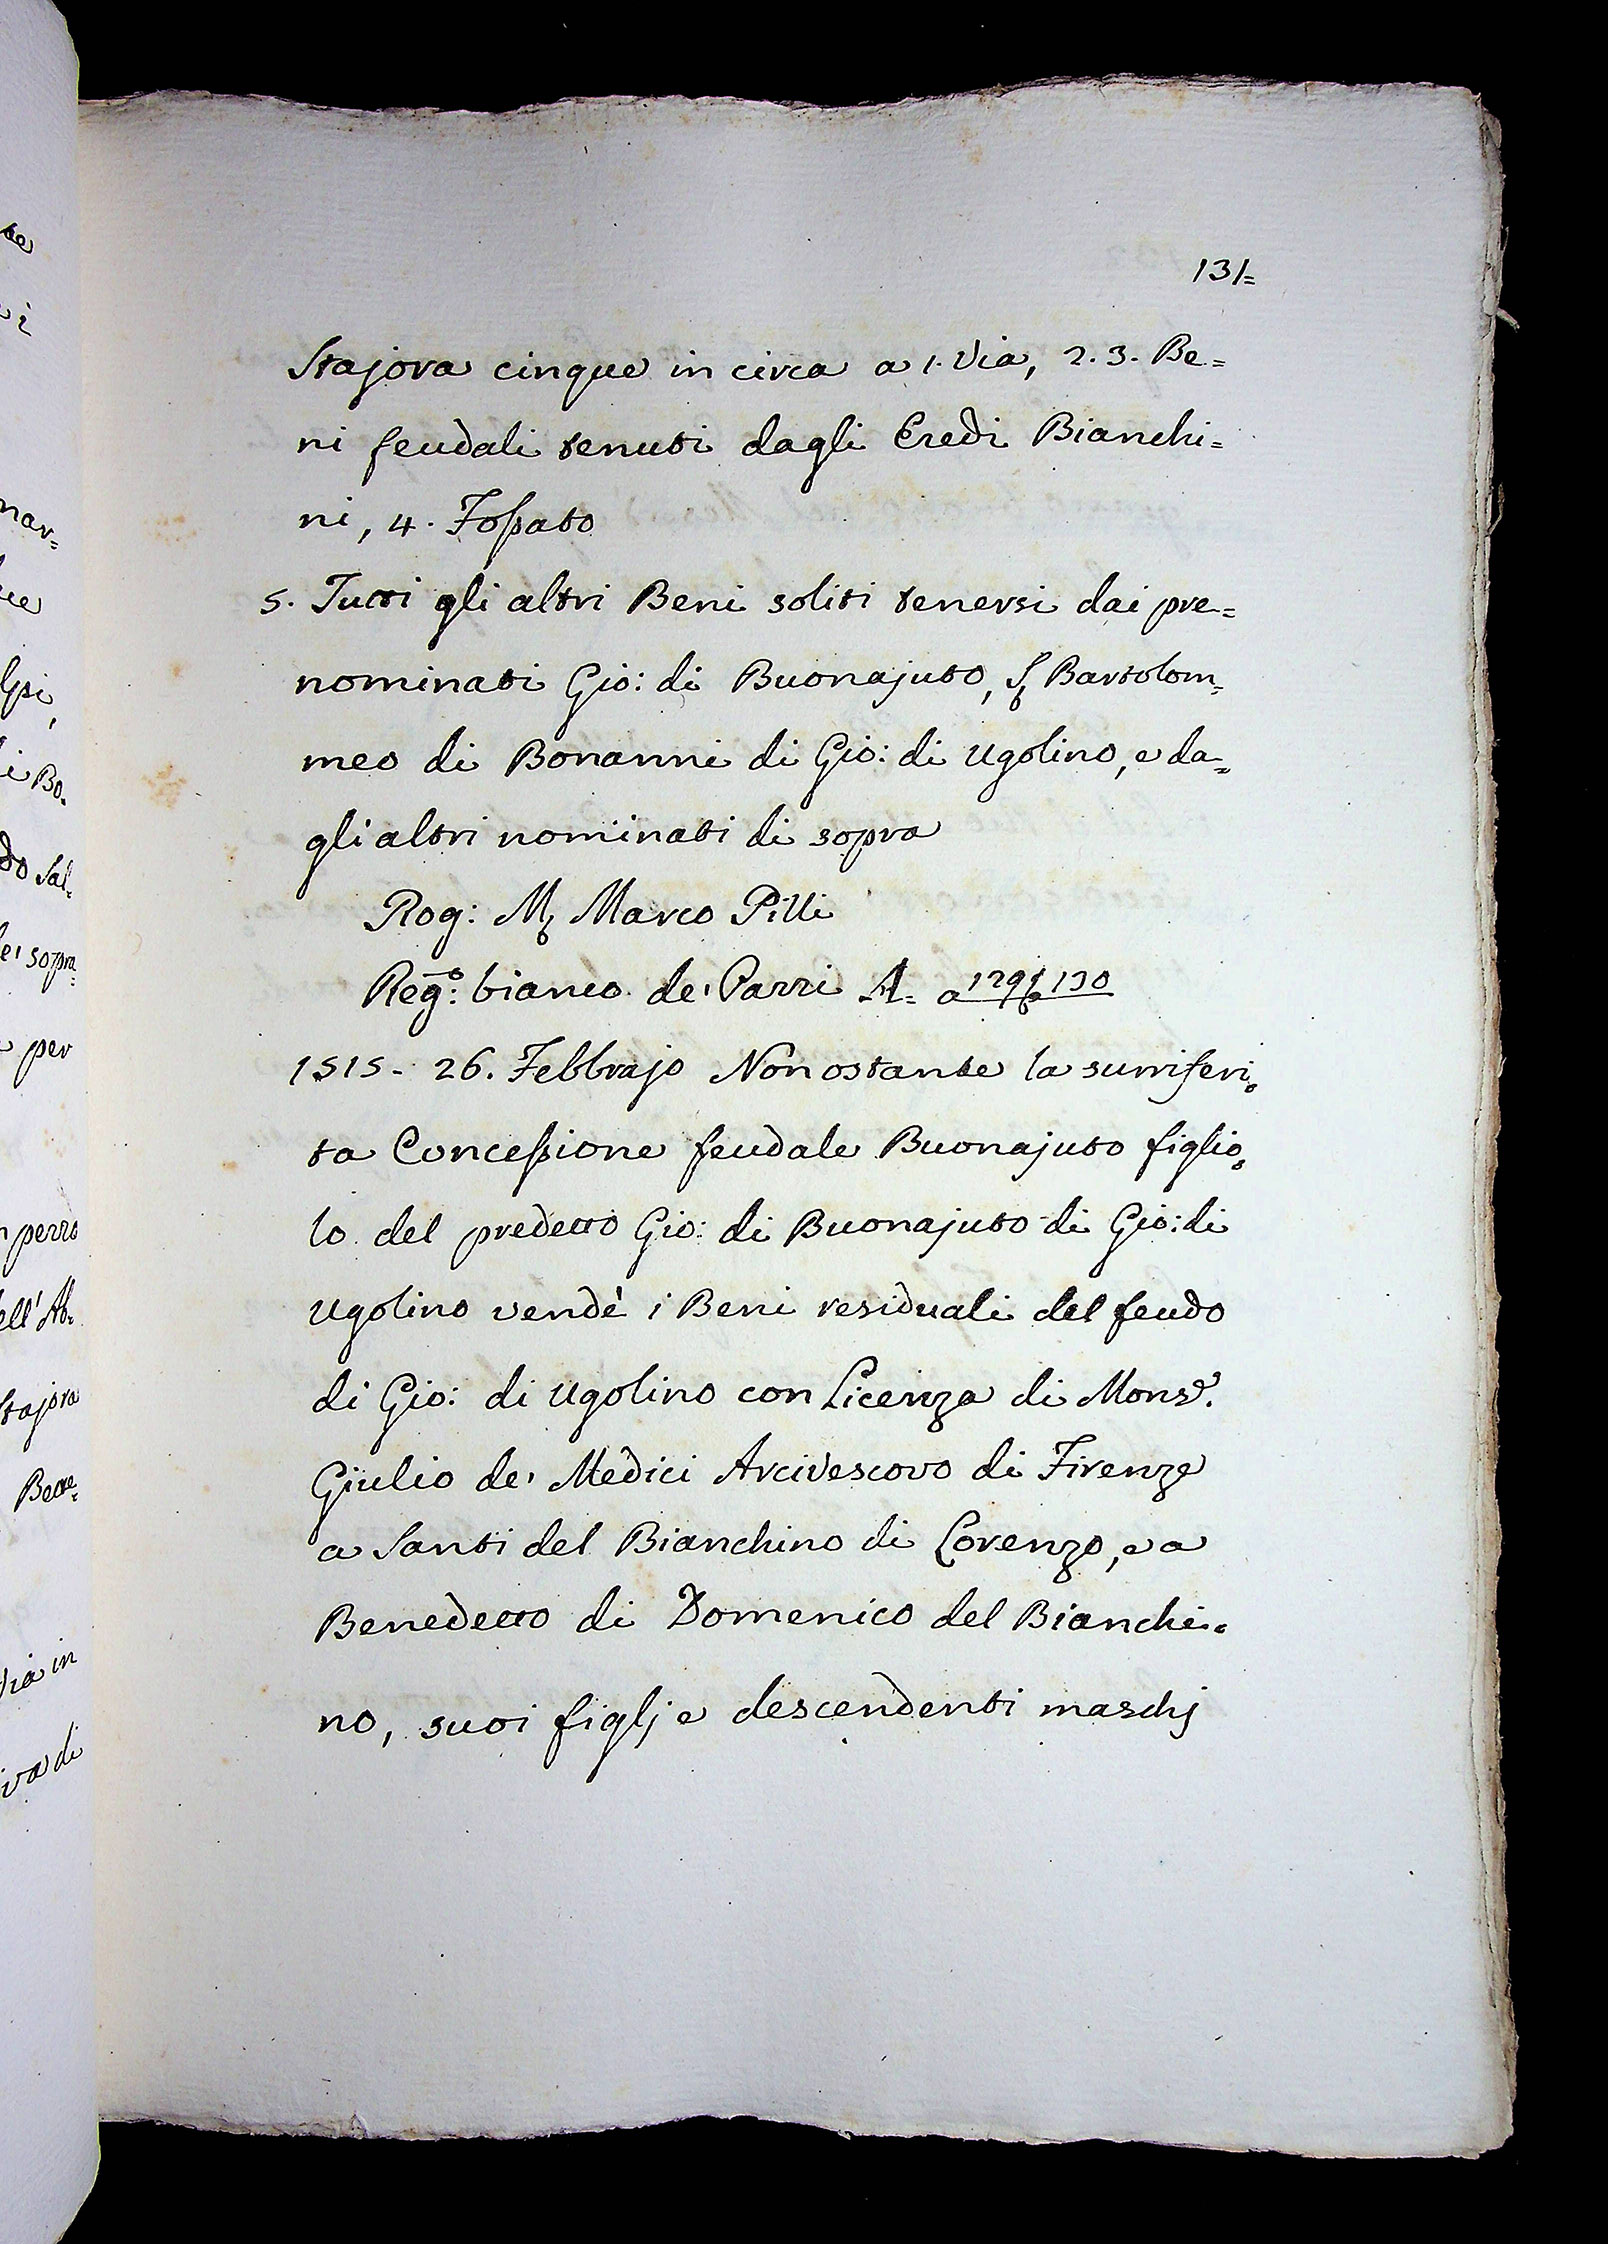 131=
Stajora cinque in circa a 1. Via, 2. 3. Be=
ni feudali tenuti dagli Eredi Bianchi=
ni, 4. Fossato
5. Tutti gli altri Beni soliti tenersi dai pre=
nominati Gio: di Buonajuto, S. Bartolom=
meo di Bonanni di Gio: di Ugolino, e da=
gli altri nominati di sopra
Rog: M. Marco Pilli
Reg:o bianco de' Pazzi A= a 129 130
1515. 26. Febbrajo Nonostante la surriferi=
ta Concessione feudale Buonajuto figlio=
lo del predetto Gio: di Buonajuto di Gio: di
Ugolino vendè i Beni residuali del feudo
di Gio: di Ugolino con Licenza di Monsr.
Giulio de' Medici Arcivescovo di Firenze
a Santi del Bianchino di Lorenzo, e a
Benedetto di Domenico del Bianchi=
no, suoi figlj e descendenti maschj